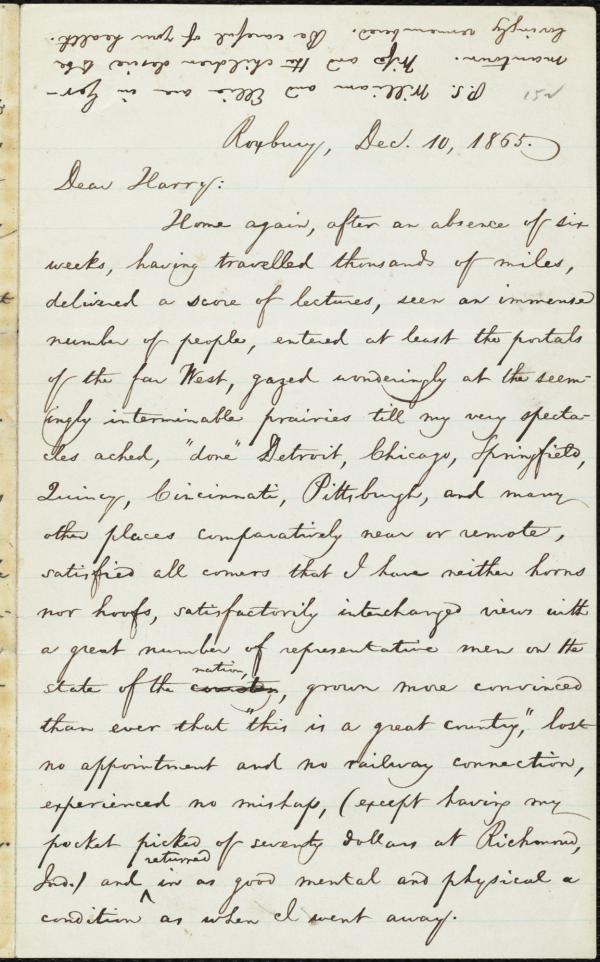 P.S. William and Ellie are in Ger-
mantown. Wife and the children desire to be
lovingly remembered. Be careful of your health.
Roxbury, Dec. 10, 1865.
Dear Harry:
Home again, after an absence of six
weeks, having travelled thousands of miles,
delivered a score of lectures, seen an immense
number of people, entered at least the portals
of the far West, gazed wonderingly at the seem-
ingly interminable prairies till my very specta-
cles ached, "done" Detroit, Chicago, Springfield,
Quincy, Cincinnati, Pittsburgh, and many
other places comparatively near or remote,
satisfied all comers that I have neither horns
nor hoofs, satisfactorily interchanged views with
a great number of representative men on the
nation,
state of the country, grown more convinced
than ever that "this is a great country," lost
no appointment and no railway connection,
experienced no mishap, (except having my
pocket picked of seventy dollars at Richmond,
returned
Ind.) and in as good mental and physical a
condition as when I went away.